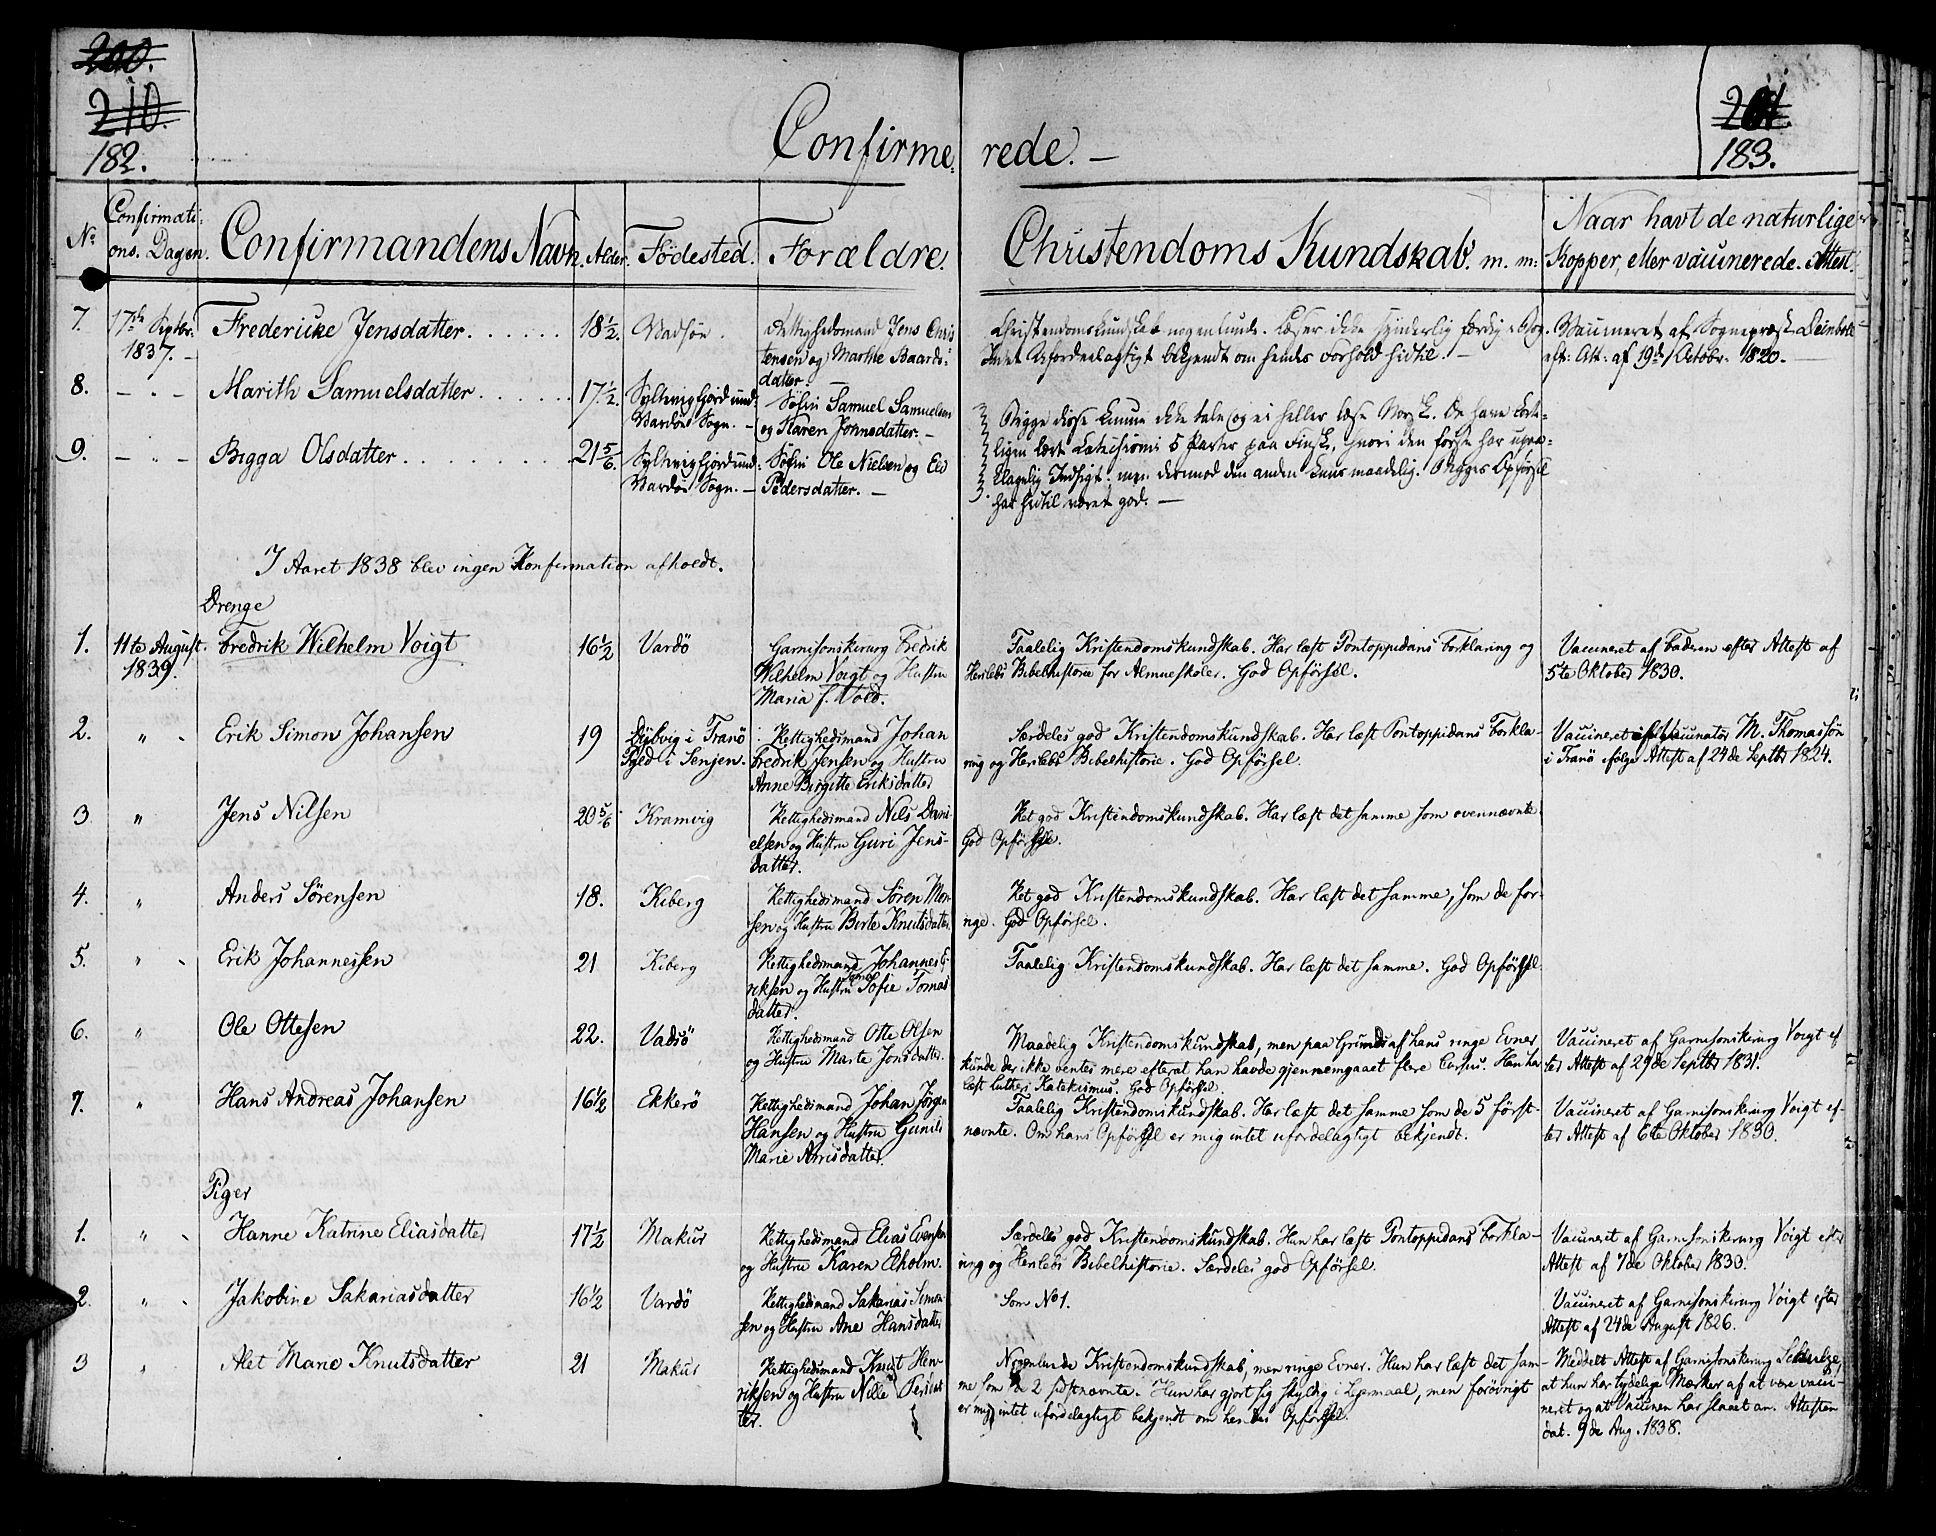 200.
210.
182.
Confirme rede. —
201.
183.
No
Confirmati:
ons. Dagen.
Confirmandens Navn.
Alder.
Födested.
Forældre.
Christendoms Kundskab. m. m:
Naar havt de naturlige
Kopper, eller vaccinerede. Attest.
7.
17de Septbr.
1837. -
Fredericke Jensdatter
18 1/2.
Vadsöe.
Rettighedsmand Jens Chris
tensen og Marthe Baards:
datter. —
Christendomskundskab nogenlunde. Læser ikke synderlig færdig i Bog.
Intet ufordeelagtigt bekjendt om hendes Forhold hidtil. —
Vaccineret af Sognepræst Deinboll
eft: Att: af 19de Octobr. 1820. —
8.
— " —
Marith Samuelsdatter
17 1/2.
Syltevigfjord und:
Vardöe Sogn. —
Söfin Samuel Samuelsen
og Karen Johnsdatter. —
Begge disse kunne ikke tale og ei heller læse Norsk. De have
9.
— " —
Bigga Olsdatter
21 5/6.
Syltevigfjord und:
Vardöe Sogn. —
Söfin Ole Nielsen og
Pedersdatter. —
ligen lært Catechismi 5 Parter paa Finsk, hvori den første har
Indsigt; men derimod den anden kuns maadelig. Begges Opførsel
har hidtil været god. —
I Aaret 1838 blev ingen Konfirmation afholdt.
Drenge
1.
11te August.
1839.
Fredrik Wilhelm Voigt
16 1/2
Vardö
Garnisonskirurg Fredrik
Wilhelm Voigt og Hustru
Maria f. Vold.
Taalelig Kristendomskundskab. Har læst Pontoppidans Forklaring og
Herslebs Bibelhistorie for Almueskoler. God Opførsel.
Vaccineret af Faderen efter Attest af
5te Oktober 1830.
2.
" -
Erik Simon Johansen
19
Dybvig i Tranö
Pgjeld i Senjen.
Rettighedsmand Johan
Fredrik Jensen og Hustru
Anne Birgitte Eriksdatter
Særdeles god Kristendomskundskab. Har læst Pontoppidans Forkla-
ring og Herslebs Bibelhistorie. God Opførsel.
Vaccineret af Vaccinatör M. Thomassön
i Tranö ifølge Attest af 24de Septbr 1824.
3
"
Jens Nilsen
20 5/6
Kramvig
Rettighedsmand Nils Dani-
elsen og Hustru Guri Jens-
datter.
Ret god Kristendomskundskab. Har læst det samme som ovennævnte.
God Opførsel.
4.
"
Anders Sörensen
18.
Kiberg
Rettighedsmand Sören Mon
sen og Hustru Berte Knutsdatter.
Ret god Kristendomskundskab. Har læst det samme, som de for-
rige. God Opførsel.
5.
" -
Erik Johannessen
21
Kiberg
Rettighedsmand Johannes E-
riksen og Hustru Sofie Tomas
datter.
Taalelig Kristendomskundskab. Har læst det samme. God Opførsel.
6.
"
Ole Ottesen
22.
Vadsö
Rettighedsmand Otte Olsen
og Hustru Marte Jonsdatter.
Maadelig Kristendomskundskab, men paa Grund af hans ringe Evner
kunde der ikke ventes mere efterat han havde gjennemgaaet flere Cursus. Han har
læst Luthers Katekismus. God Opførsel.
Vaccineret af Garnisonskirurg Voigt ef
ter Attest af 29de Septbr 1831.
7.
"
Hans Andreas Johansen
16 1/2
Ekkerö
Rettighedsmand Johan Jörgen
Hansen og Hustru Gunild
Marie Arnisdatter.
Taalelig Kristendomskundskab. Har læst det samme som de 5 först-
nævnte. Om hans Opførsel er mig intet ufordelagtigt bekjendt.
Vaccineret af Garnisonskirurg Voigt ef-
ter Attest af 6te Oktober 1830.
Piger
1.
" -
Hanne Katrine Eliasdatter
17 1/2
Makur
Rettighedsmand Elias Evensen
og Hustru Karen Elholm.
Særdeles god Kristendomskundskab. Hun har læst Pontoppidans Forkla-
ring og Herslebs Bibelhistorie. Særdeles god Opførsel.
Vaccineret af Garnisonskirurg Voigt efter
Attest af 7de Oktober 1830.
2.
" -
Jakobine Sakariasdatter
16 1/2
Vardö
Rettighedsmand Sakarias Simon-
sen og Hustru Ane Hansdatter
Som No 1.
Vaccineret af Garnisonskirurg Voigt efter
Attest af 24de August 1826.
3
"
Alet Marie Knutsdatter
21
Makur
Rettighedsmand Knut Hen-
riksen og Hustru Nille
ter.
Nogenlunde Kristendomskundskab, men ringe Evner. Hun har læst det sam-
me som de 2 sidstnævnte. Hun har gjort sig skyldig i Lejermaal, men forövrigt
er mig intet ufordelagtigt bekjendt om hendes Opførsel.
Meddelt Attest af Garnisonskirurg Schultze,
at hun har tydelige Mærker af at være vacci-
neret og at Vaccinen har slaaet an. Attesten
dat. 9de Aug. 1838.